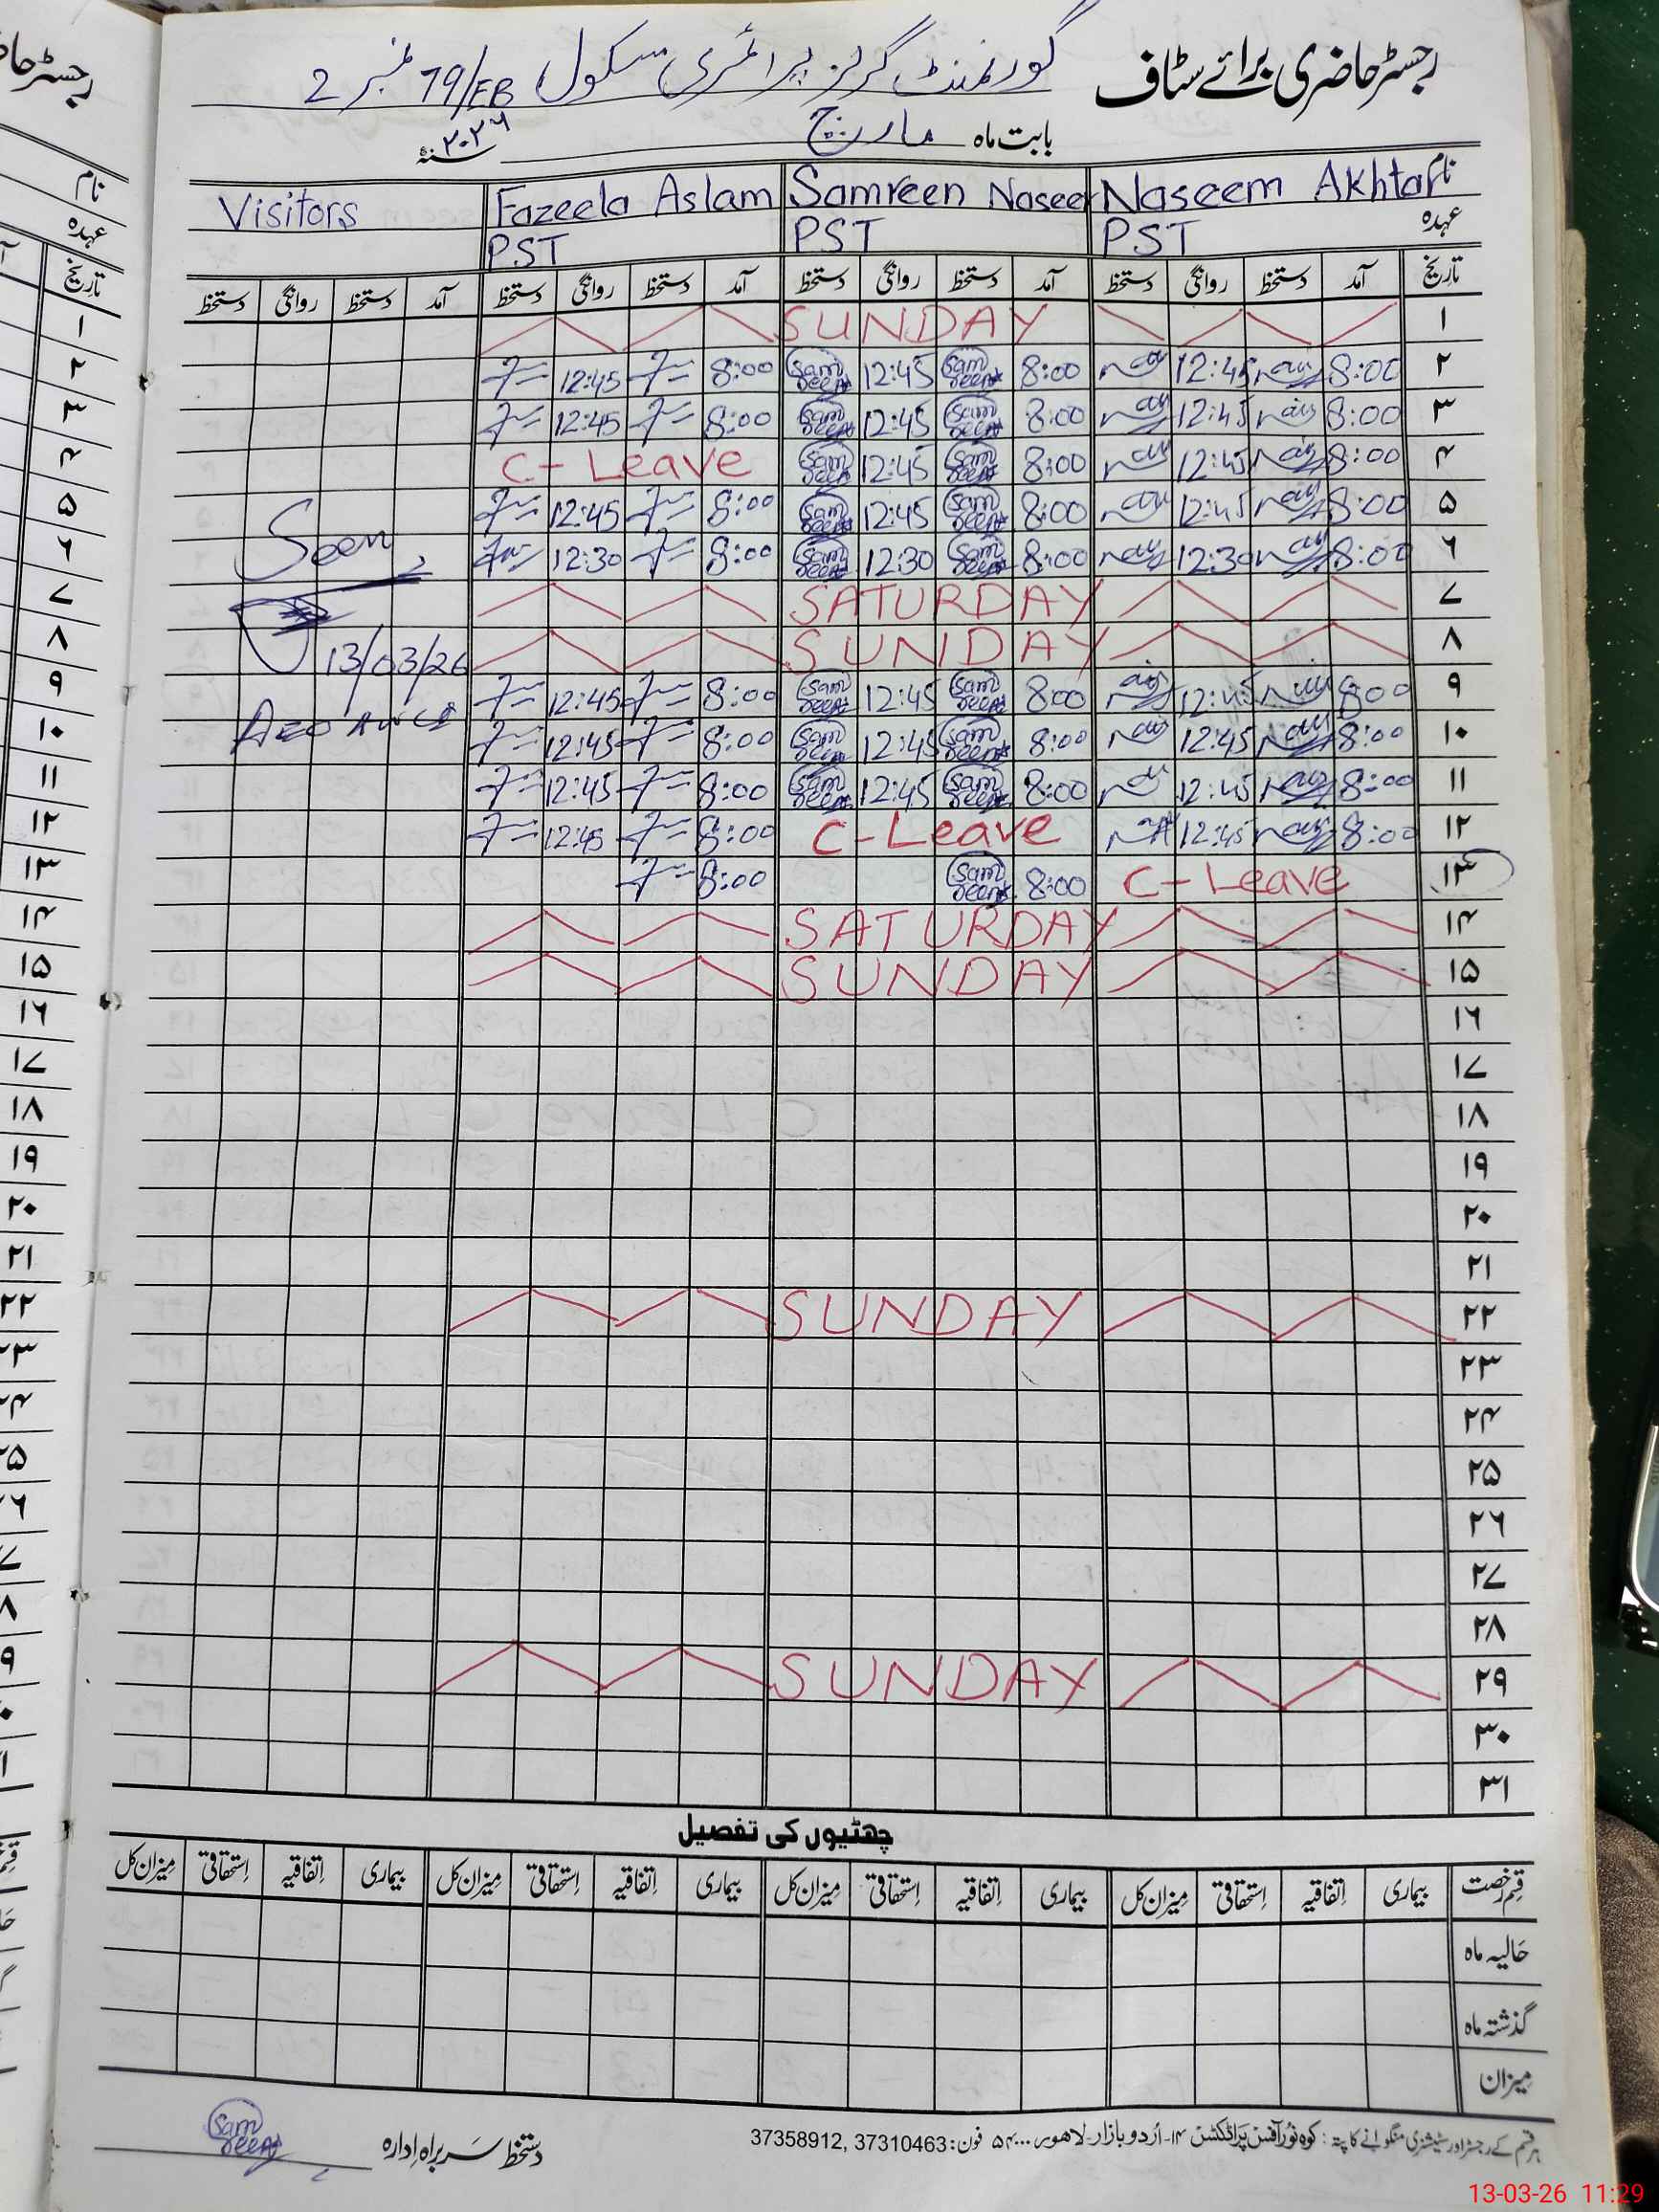 رجسٹر حاضری برائے سٹاف گورنمنٹ گرلز پرائمری سکول 79/EB نمبر 2
بابت ماہ مارچ ۲۰۲۶ سنہ
نام Naseem Akhtar Samreen Naseer Fazeela Aslam Visitors
عہدہ PST PST PST
تاریخ آمد دستخط روانگی دستخط آمد دستخط روانگی دستخط آمد دستخط روانگی دستخط آمد دستخط روانگی دستخط
۱ SUNDAY
۲ 8:00 12:45 8:00 Sam Reena 12:45 Sam Reena 8:00 12:45
۳ 8:00 12:45 8:00 Sam Reena 12:45 Sam Reena 8:00 12:45
۴ 8:00 12:45 8:00 Sam Reena 12:45 Sam Reena C-Leave
۵ 8:00 12:45 8:00 Sam Reena 12:45 Sam Reena 8:00 12:45
۶ 8:00 12:30 8:00 Sam Reena 12:30 Sam Reena 8:00 12:30 Seen
۷ SATURDAY
۸ SUNDAY 13/03/26
۹ 8:00 12:45 8:00 Sam Reena 12:45 Sam Reena 8:00 12:45
۱۰ 8:00 12:45 8:00 Sam Reena 12:45 Sam Reena 8:00 12:45 AEO
۱۱ 8:00 12:45 8:00 Sam Reena 12:45 Sam Reena 8:00 12:45
۱۲ 8:00 12:45 C-Leave 8:00 12:45
۱۳ C-Leave 8:00 Sam Reena 8:00
۱۴ SATURDAY
۱۵ SUNDAY
۱۶
۱۷
۱۸
۱۹
۲۰
۲۱
۲۲ SUNDAY
۲۳
۲۴
۲۵
۲۶
۲۷
۲۸
۲۹ SUNDAY
۳۰
۳۱
چھٹیوں کی تفصیل
قسم رخصت بیماری اتفاقیہ استحقاقی میزان کل بیماری اتفاقیہ استحقاقی میزان کل بیماری اتفاقیہ استحقاقی میزان کل بیماری اتفاقیہ استحقاقی میزان کل
حالیہ ماہ
گذشتہ ماہ
میزان
ہر قسم کے رجسٹر اور سٹیشنری منگوانے کا پتہ: کوہ نور آفس پراڈکٹس ۱۴-اردو بازار-لاہور ۵۴۰۰۰ فون: 37310463, 37358912
دستخط سربراہ ادارہ Sam Reena
13-03-26 11:29